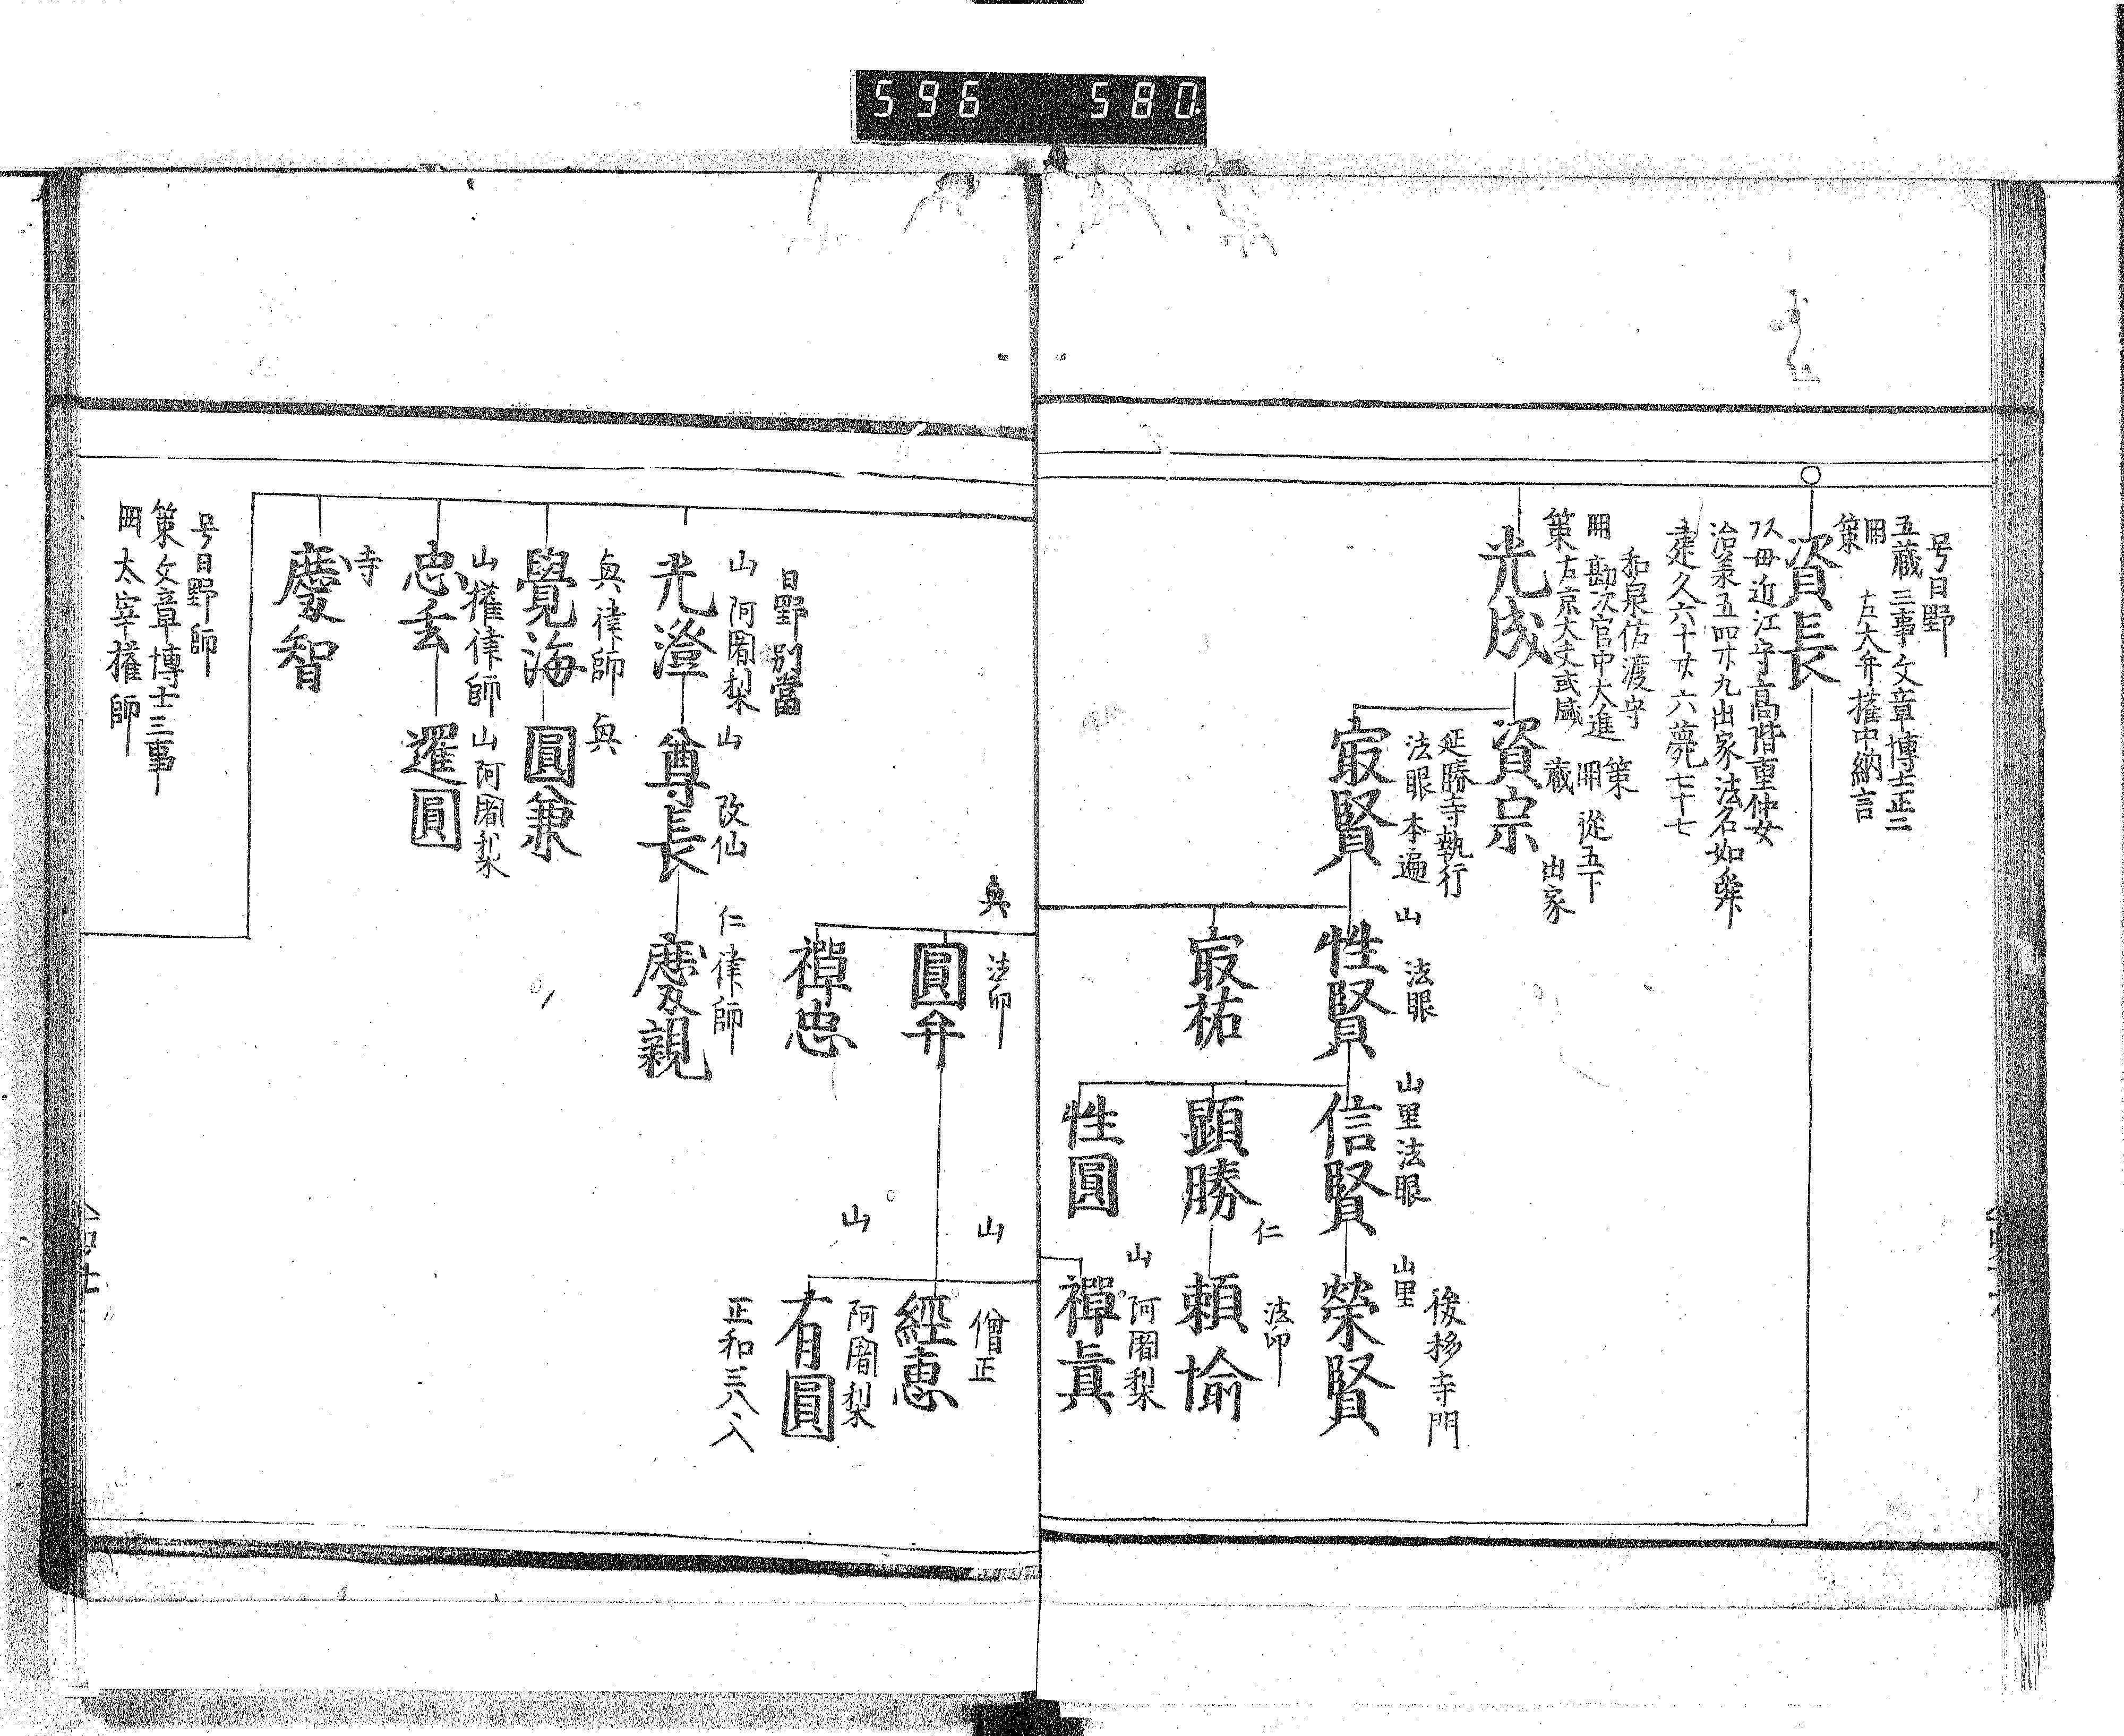 596 580
号日野
五蔵三事文章博士正二
開 左大弁権中納言
策
資長
以母近江守高階重仲女
治承五四廿九出家法名如舜
建久六十廿六薨七十七
和泉佐渡守
開 勘次官中大進
策 右京大夫
光成
策
開 從五下
蔵 出家
資宗
延勝寺執行
法眼 本遍
㝡賢
山 法眼
性賢
山里法眼
信賢
後移寺門
山里
榮賢
㝡祐
顕勝
仁 法印
頼愉
性圓
山 阿闍梨
禅眞
奥 法印
圓弁
山 僧正
經恵
山 阿闍梨
有圓
正和三八入
禅忠
日野別當
山 阿闍梨
光澄
山 改仙
尊長
仁律師
慶親
奥律師
覺海
奥
圓兼
山権律師
忠玄
山阿闍梨
暹圓
寺
慶智
号日野師
策文章博士三事
太宰権師